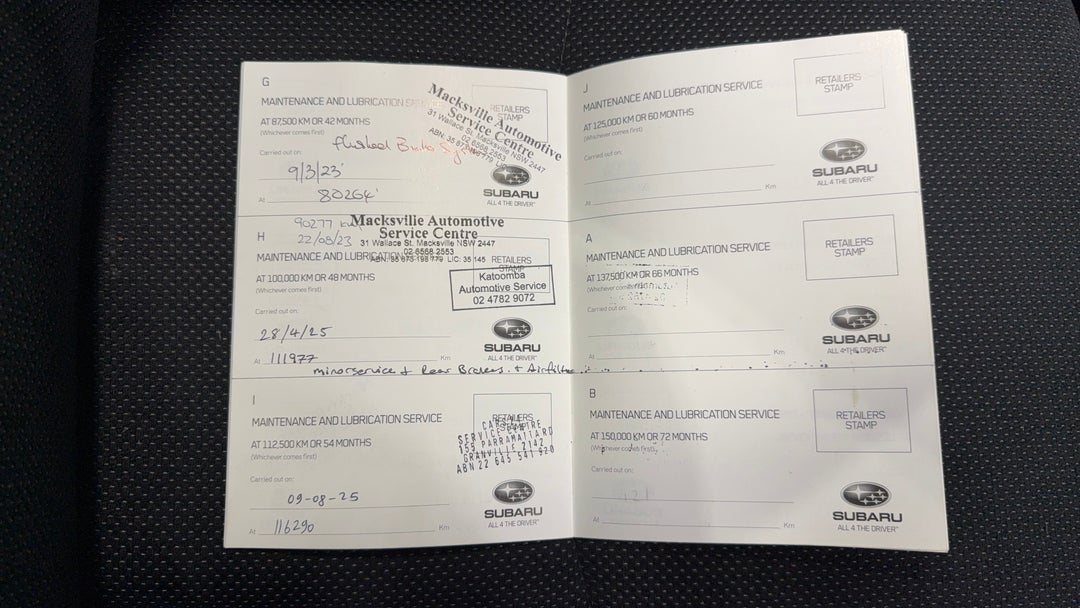 G
MAINTENANCE AND LUBRICATION
AT 87,500 KM OR 42 MONTHS
(Whichever comes first)
Carried out on:
flushed
9/3/23
At 80264
RETAILERS
STAMP
Macksville Automotive
Service Centre
31 Wallace St. Macksville NSW 2447
02 6568 2553
SUBARU
ALL 4 THE DRIVER™
90277
22/08/23
H
MAINTENANCE AND LUBRICATION
AT 100,000 KM OR 48 MONTHS
(Whichever comes first)
Carried out on:
28/4/25
At 111977 Km
Macksville Automotive
Service Centre
31 Wallace St. Macksville NSW 2447
02 6568 2553
RETAILERS
STAMP
Katoomba
Automotive Service
02 4782 9072
SUBARU
ALL 4 THE DRIVER™
minor service + Rear Brakes. + Airfilter
I
MAINTENANCE AND LUBRICATION SERVICE
AT 112,500 KM OR 54 MONTHS
(Whichever comes first)
Carried out on:
09-08-25
At 116290 Km
RETAILERS
STAMP
155 PARRAMATTA RD
GRANVILLE 2142
ABN 22 645 541 920
SUBARU
ALL 4 THE DRIVER™
J
MAINTENANCE AND LUBRICATION SERVICE
AT 125,000 KM OR 60 MONTHS
(Whichever comes first)
Carried out on:
At Km
RETAILERS
STAMP
SUBARU
ALL 4 THE DRIVER™
A
MAINTENANCE AND LUBRICATION SERVICE
AT 137,500 KM OR 66 MONTHS
(Whichever comes first)
Carried out on:
At Km
RETAILERS
STAMP
SUBARU
ALL 4 THE DRIVER™
B
MAINTENANCE AND LUBRICATION SERVICE
AT 150,000 KM OR 72 MONTHS
(Whichever comes first)
Carried out on:
At Km
RETAILERS
STAMP
SUBARU
ALL 4 THE DRIVER™